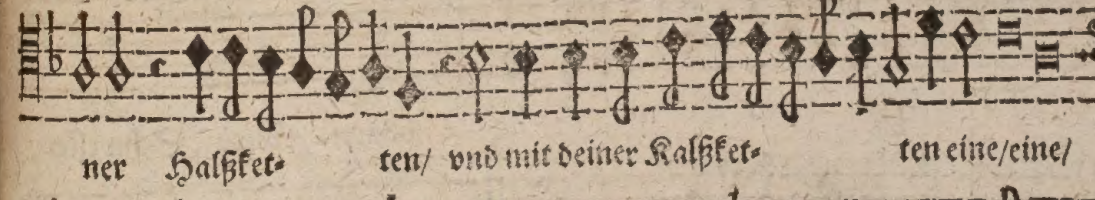 ner Halßket⸗ ten/ vnd mit deiner Kalßket⸗ ten eine/eine/